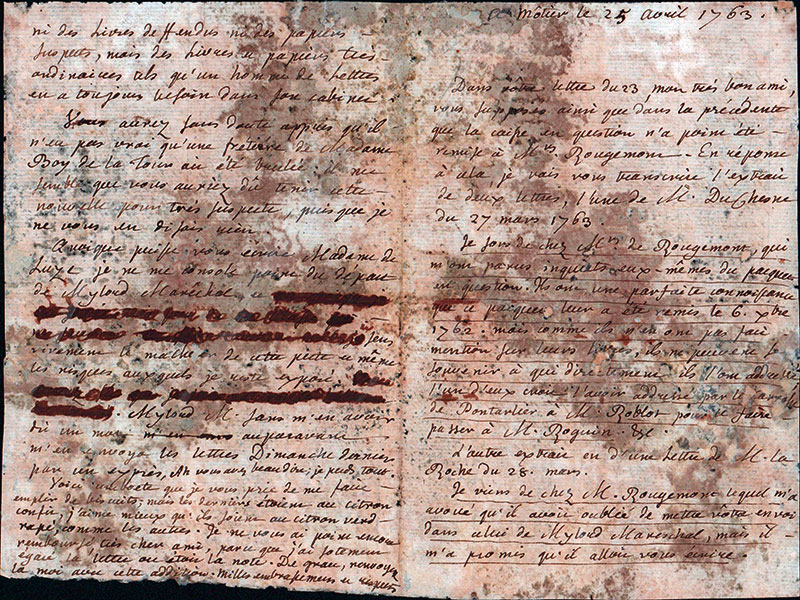 Môtier le 25 avril 1763.
Dans vôtre lettre du 23 mon très bon ami,
vous supposés ainsi que dans la précédente
que la caisse en question n'a point été
remise à Mrs. Rougemont. En réponse
à cela, je vais vous transcrire l'extrait
de deux lettres, l'une de M. Du Chesne
du 27 mars 1763.
Je sors de chez Mrs de Rougemont, qui
m'ont parus inquiets eux-mêmes du pacquet
en question. Ils ont une parfaite connoissance
que ce pacquet leur a été remis le 6. xbre
1762: mais comme ils n'en ont pas fait
mention sur leurs livres, ils ne peuvent se
souvenir à qui directement ils l'ont addressé
l'un d'eux croit l'avoir addressé par le carrosse
de Pontarlier à M. Roblot pour le faire
passer à M. Roguin. &c.
L'autre extrait est d'une lettre de M. la
Roche du 28. mars.
Je viens de chez M. Rougemont lequel m'a
avoué qu'il avoit oublié de mettre vôtre envoi
dans celui de Mylord Mareschal, mais il
m'a promis qu'il alloit vous écrire.
ni des Livres de Hendus ni des papiers
suspects, mais des Livres et papiers très-
ordinaires tels qu'un homme de Lettres
en a toujours besoin dans son cabinet.
Vous aurez sans doute appris qu'il
n'est pas vrai qu'une fréterie de Madame
Boy de la Tour ait été brulée: il me
semble que vous auriez dû tenir cette
nouvelle pour très suspecte, puisque je
ne vous en disois rien.
Quoique puisse vous écrire Madame de
Luze je ne me console point du départ
de Mylord Maréchal, et
je sens
vivement le malheur de cette perte et même
les risques auxquels je reste exposé,
Mylord M. sans m'en avoir
dit un mot auparavant
m'en envoya les lettres Dimanche dernier
par un exprès, Ah vous avez beau dire, je perds tout.
Voici une boete que je vous prie de me faire
emplir de biscuits; mais les derniers étoient au citron
confit, j'aime mieux qu'ils soient au citron verd
rapé, comme les autres. Je ne vous ai point encore
remboursé très cher ami, parce que j'ai sotement
égaré la lettre où étoit la note. De grace, renvoyez
la moi avec cette addition. Milles embrassemens et respects